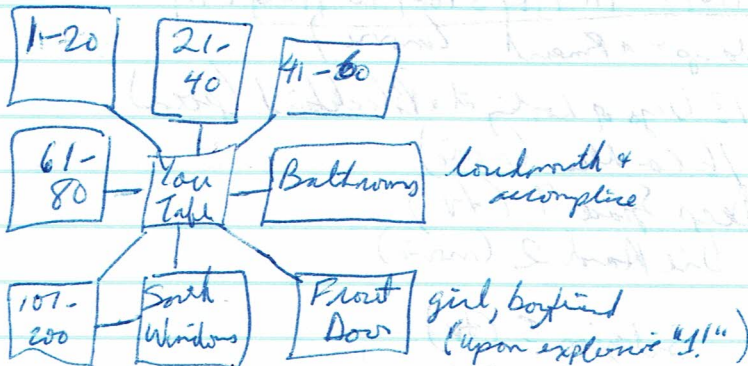 1-20
21-
40
41-60
61-
80
You
Table
Bathrooms
loudmouth &
accomplice
101-
200
South
Windows
Front
Door
girl, boyfriend
(upon explosive "1!")